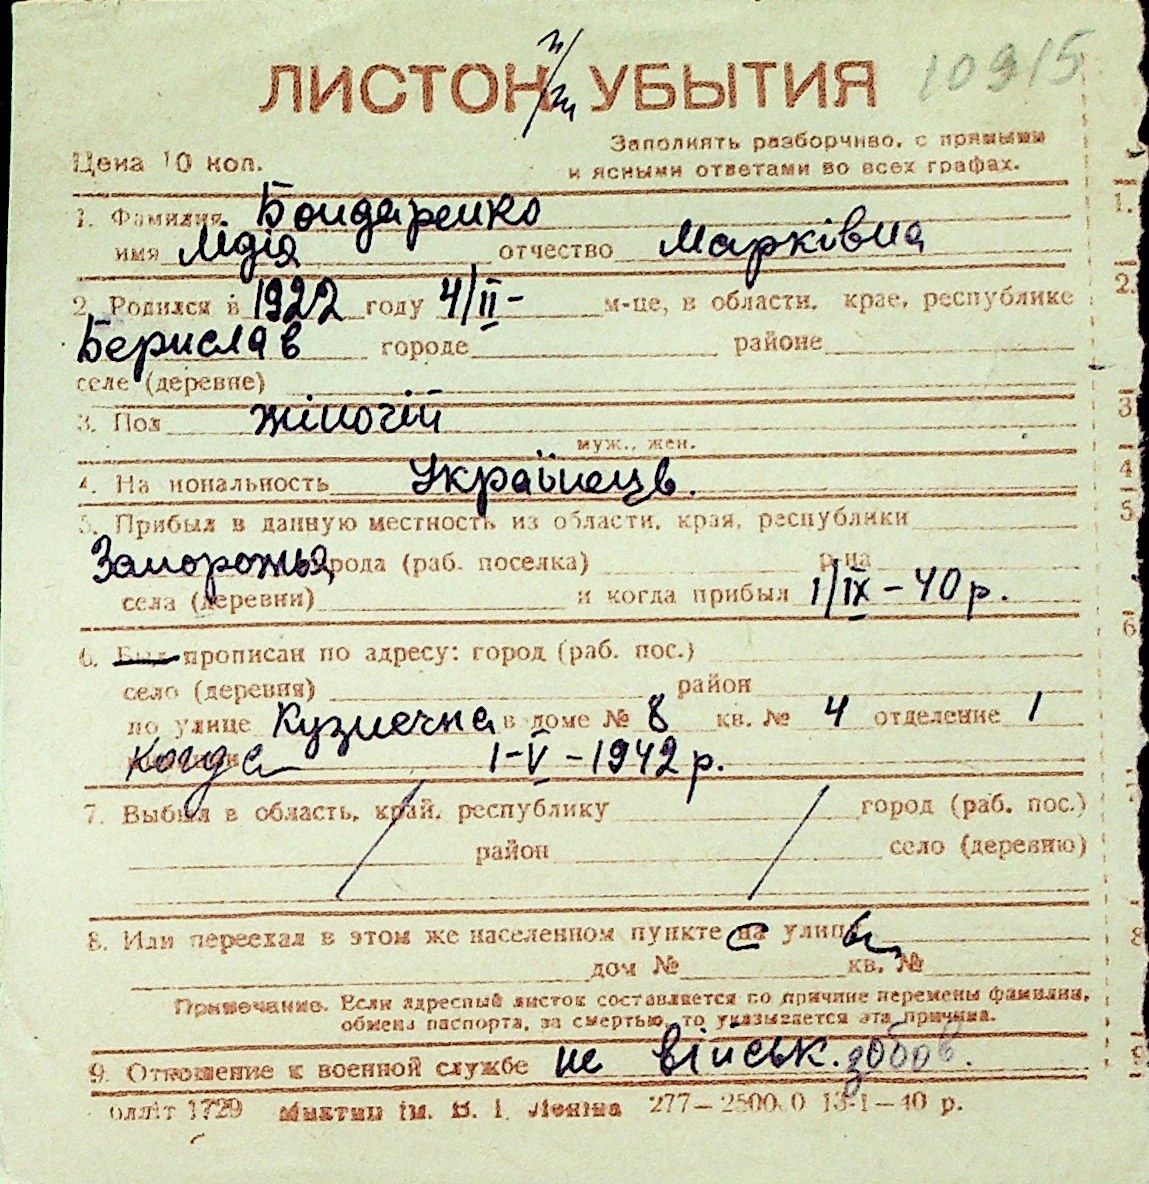 10915
ЛИСТОК УБЫТИЯ
Цена 10 коп.
Заполнять разборчиво, с прямыми
и ясными ответами во всех графах.
1. Фамилия Бондаренко
имя Лідія отчество Марківна
2. Родился в 1922 году 4/II- м-це, в области, крае, республике
Берислав городе районе
селе (деревне)
3. Пол жіночій
муж., жен.
4. На иональность Українець.
5. Прибыл в данную местность из области, края, республики
Запорожья рода (раб. поселка) р-на
села (деревни) и когда прибыл 1/IX - 40 р.
6. Был прописан по адресу: город (раб. пос.)
село (деревня) район
по улице Кузнечна в доме № 8 кв. № 4 отделение 1
Когда 1-V-1942 р.
7. Выбыл в область, край, республику город (раб. пос.)
район село (деревню)
8. Или переехал в этом же населенном пункте на улицу
дом № кв. №
Примечание. Если адресный листок составляется по причине перемены фамилии,
обмена паспорта, за смертью, то указывается эта причина.
9. Отношение к военной службе не військ. зобов.
1729 ім. В. І. Леніна 277—2500.0 13-1—40 р.